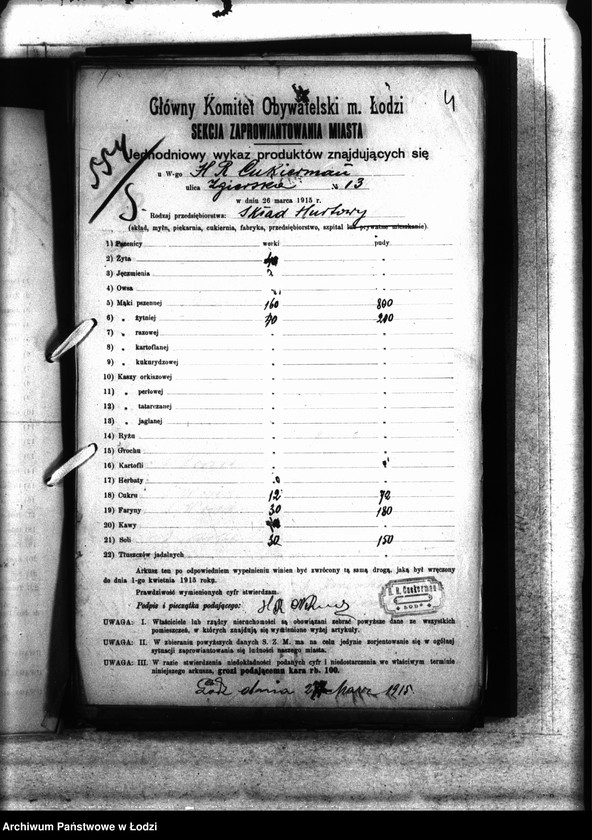 4
Główny Komitet Obywatelski m. Łodzi
SEKCJA ZAPROWIANTOWANIA MIASTA
554
Jednodniowy wykaz produktów znajdujących się
u W-go H R Cukierman
ulica Zgierska № 13
w dniu 26 marca 1915 r.
Rodzaj przedsiębiorstwa: Skład Hurtowy
(skład, młyn, piekarnia, cukiernia, fabryka, przedsiębiorstwo, szpital lub prywatne mieszkanie).
1) Pszenicy worki pudy
2) Żyta
3) Jęczmienia
4) Owsa
5) Mąki pszennej 160 800
6) „ żytniej 70 210
7) „ razowej
8) „ kartoflanej
9) „ kukurydzowej
10) Kaszy orkiszowej
11) „ perłowej
12) „ tatarczanej
13) „ jaglanej
14) Ryżu
15) Grochu
16) Kartofli
17) Herbaty
18) Cukru 12 72
19) Faryny 30 180
20) Kawy
21) Soli 30 150
22) Tłuszczów jadalnych
Arkusz ten po odpowiedniem wypełnieniu winien być zwrócony tą samą drogą, jaką był wręczony
do dnia 1-go kwietnia 1915 roku.
Prawdziwość wymienionych cyfr stwierdzam.
Podpis i pieczątka podającego:
H. R. Cukerman
ŁODZ
UWAGA: I. Właściciele lub rządcy nieruchomości są obowiązani zebrać powyższe dane ze wszystkich
pomieszczeń, w których znajdują się wymienione wyżej artykuły.
UWAGA: II. W zbieraniu powyższych danych S. Z. M. ma na celu jedynie zorjentowanie się w ogólnej
sytuacji zaprowiantowania się ludności naszego miasta.
UWAGA: III. W razie stwierdzenia niedokładności podanych cyfr i niedostarczenia we właściwym terminie
niniejszego arkusza, grozi podającemu kara rb. 100.
dnia 1915
Archiwum Państwowe w Łodzi